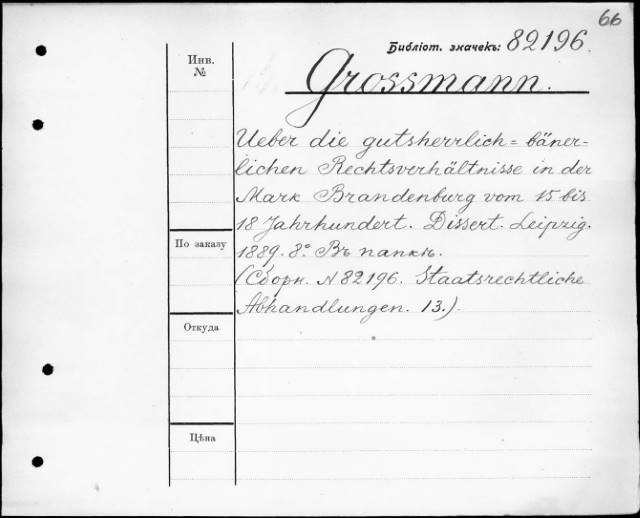 66
Библіот. значекъ: 82196.
Инв.
№
Grossmann.
Ueber die gutsherrlich = bäner-
lichen Rechtsverhältnisse in der
Mark Brandenburg vom 15 bis
18 Jahrhundert. Dissert. Leipzig.
1889. 8º. Въ папкѣ.
(Сборн. N 82196. Staatsrechtliche
Abhandlungen. 13.)
По заказу
Откуда
Цѣна